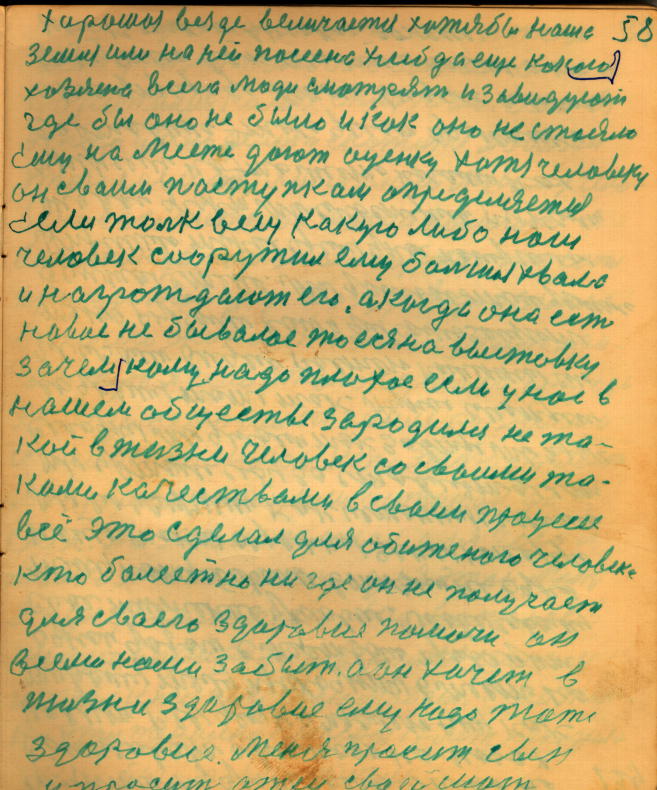 хорошия везде величается хотябы наша 58
земля или на ней посеена хлеб да еще какого
хозяена всега люди смотрят и завидуют
где бы оно не было и как оно не стояло
ему на месте дают оценку хотя человеку
он своим поступкам определяется
Если толк вещ какую либо наш
человек соорутил ему большая хвала
и награждают его, а когда она есть
новае не бывалое то еена выстовку
зачем кому надо плохое если у нас в
нашем обществе зародился не та-
кой в жизни человек со своими та-
кими качествами в своим процесе
всё это сделал для обиженого человека
кто болеет но ни где он не получает
для своего здоровие помочи он
всеми нами забыт. а он хочет в
жизни здоровие ему надо тоже
здоровие. Меня просит сын
и просит отец своей мат